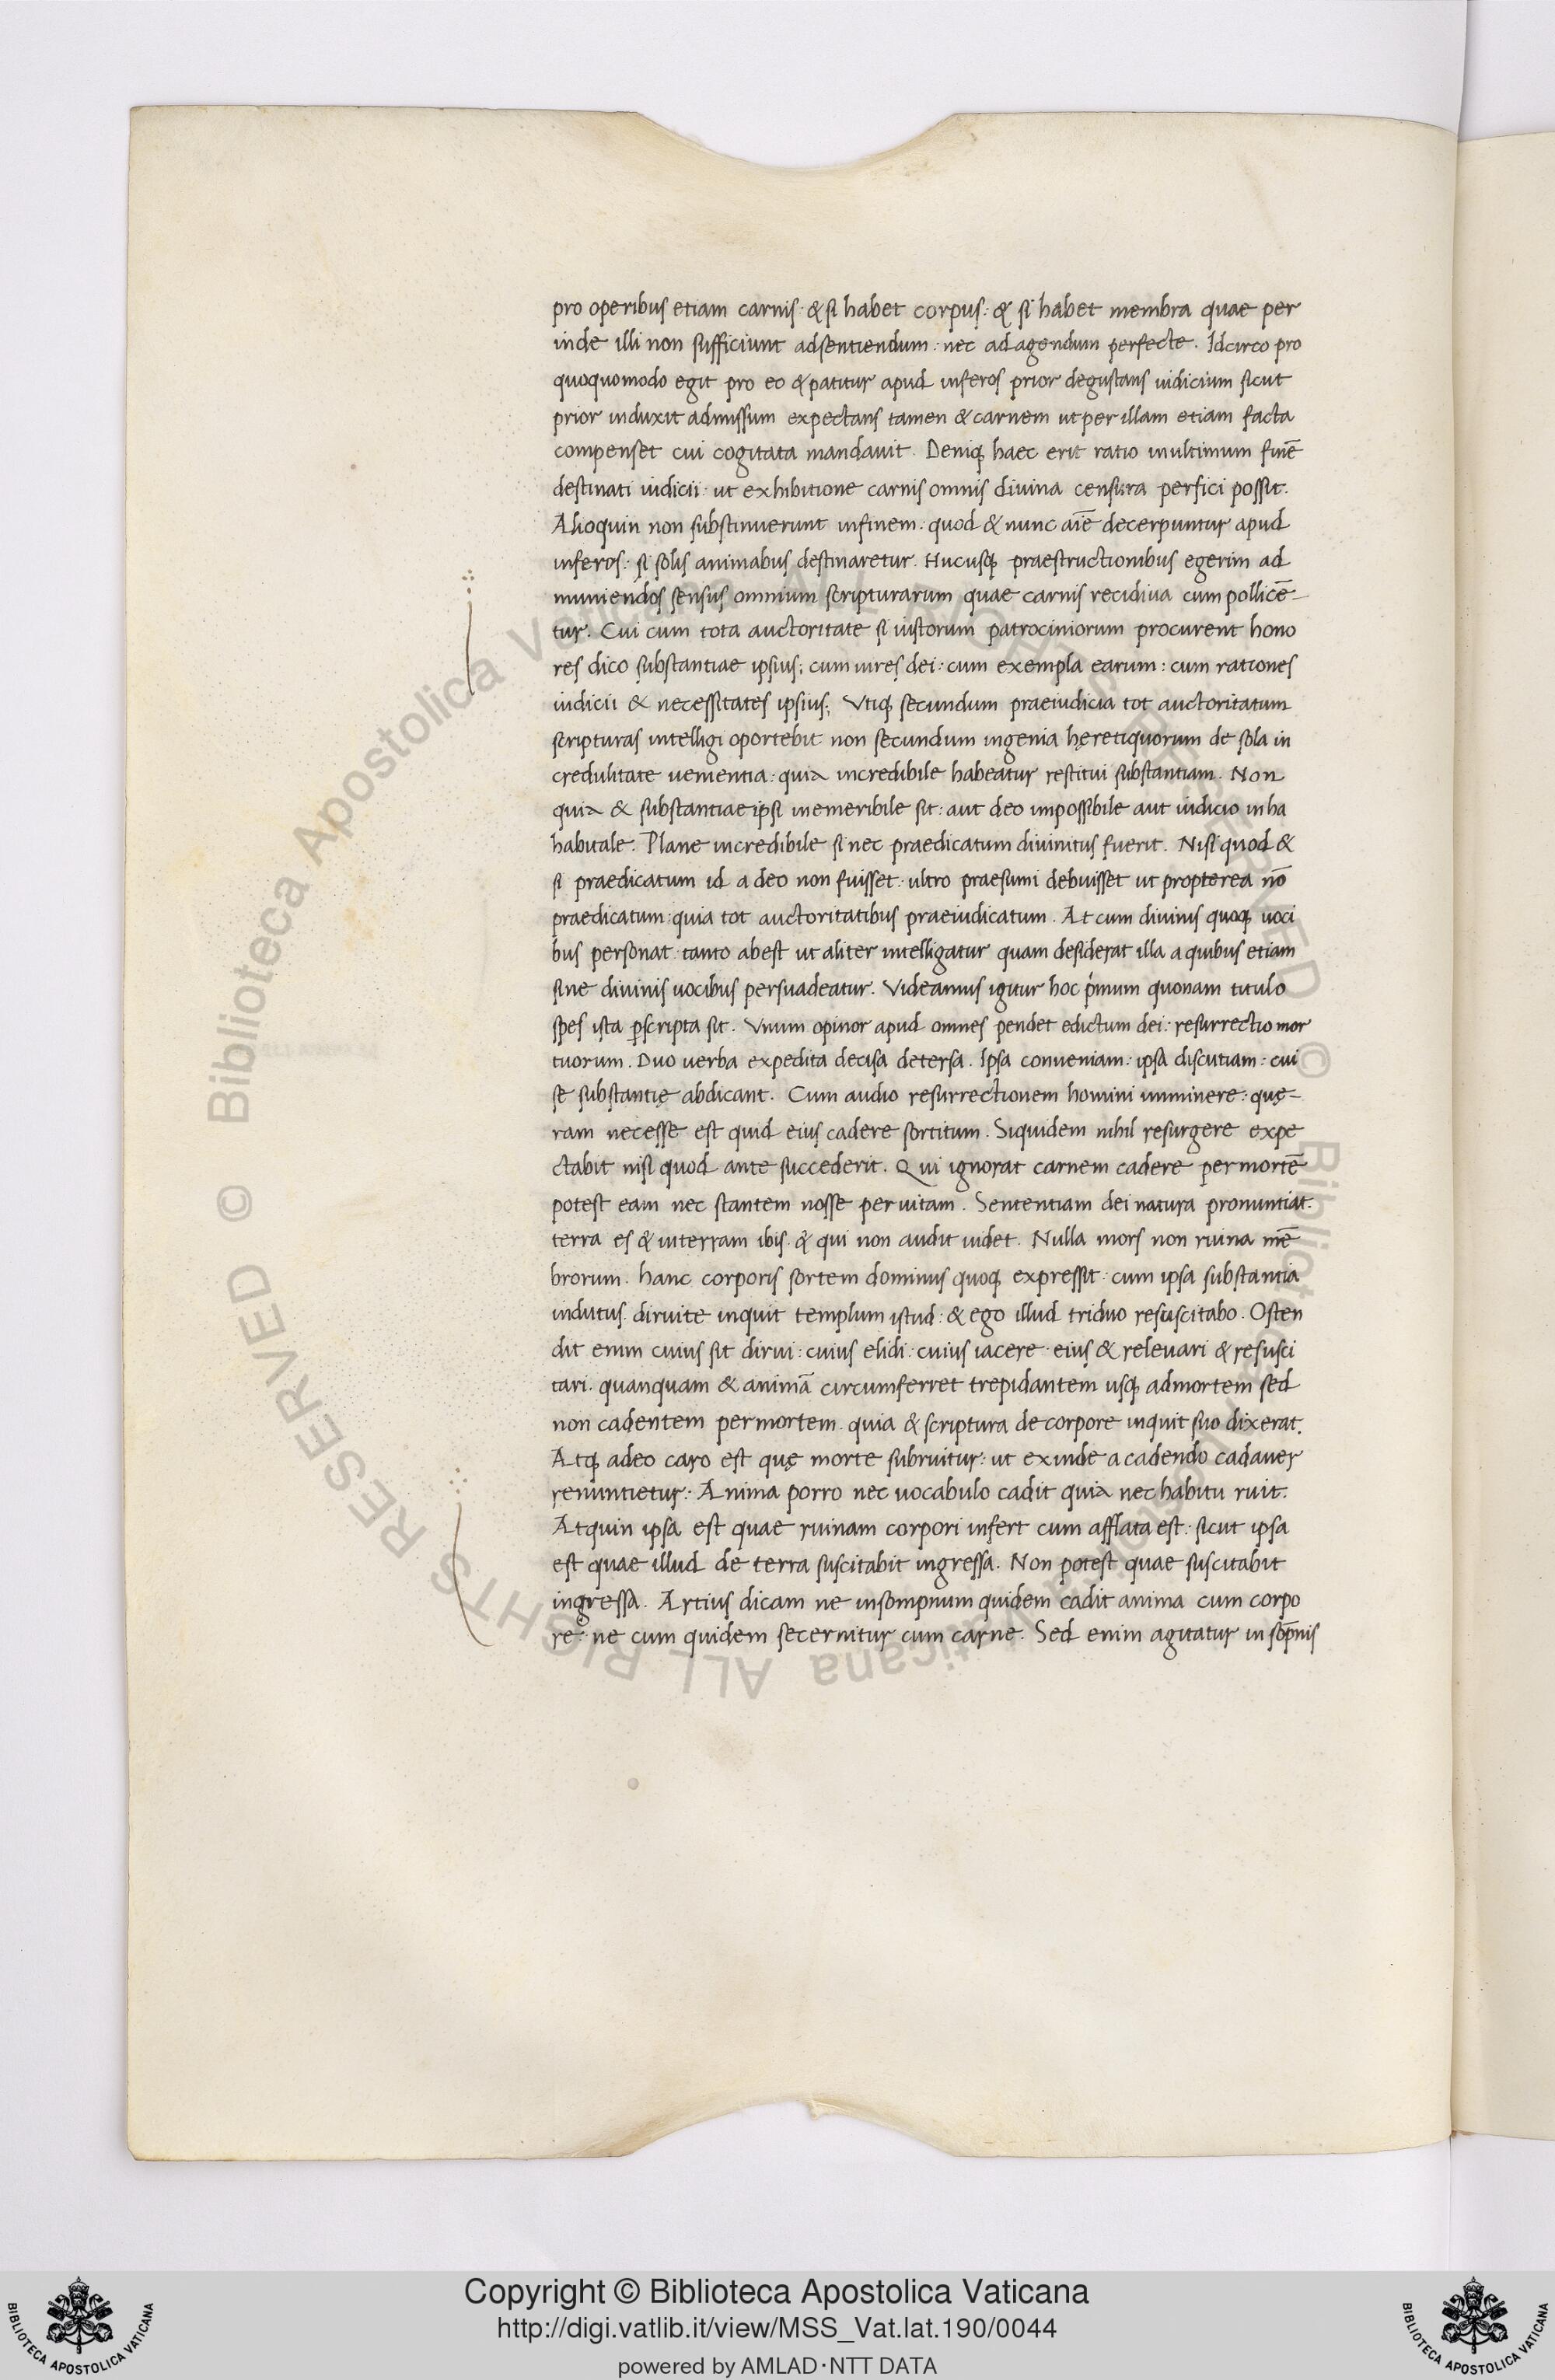 pro operibus etiam carnis· & si habet corpus: & si habet membra quae per
inde illi non sufficiunt adsentiendum: nec ad agendum perfecte. Idcirco pro
quoquomodo egit pro eo & patitur apud inferos prior degustans iudicium sicut
prior induxit admissum expectans tamen & carnem ut per illam etiam facta
compenset cui cogitata mandauit. Deniq haec erit ratio in ultimum finē
destinati iudicii: ut exhibitione carnis omnis diuina censura perfici possit.
Alioquin non substinuerunt infinem. quod & nunc aīe decerpuntur apud
inferos: si solis animabus destinaretur. Hucusq praestructionibus egerim ad
muniendos sensus omnium scripturarum quae carnis recidiua cum pollicē-
tur. Cui cum tota auctoritate si iustorum patrociniorum procurent hono
res dico substantiae ipsius; cum uires dei: cum exempla earum: cum rationes
iudicii & necessitates ipsius; Vtiq secundum praeiudicia tot auctoritatum
scripturas intelligi oportebit non secundum ingenia hęretiquorum de sola in
credulitate uementia: quia incredibile habeatur restitui substantiam. Non
quia & substantiae ipsi inemeribile sit: aut deo impossibile aut iudicio inha
habitale. Plane incredibile si nec praedicatum diuinitus fuerit. Nisi quod &
si praedicatum id a deo non fuisset· ultro praesumi debuisset ut propterea nō
praedicatum: quia tot auctoritatibus praeiudicatum. At cum diuinis quoq uoci
bus personat· tanto abest ut aliter intelligatur quam desiderat illa a quibus etiam
sine diuinis uocibus persuadeatur. Videamus igitur hoc pimum quonam titulo
spes ista pscripta sit. Vnum opinor apud omnes pendet edictum dei: resurrectio mor
tuorum. Duo uerba expedita decisa detersa. Ipsa conueniam: ipsa discutiam: cui
se substantię abdicant. Cum audio resurrectionem homini imminere: quę-
ram necesse est quid eius cadere sortitum. Siquidem nihil resurgere expe
ctabit nisi quod ante succederit. Qui ignorat carnem cadere per mortē
potest eam nec stantem nosse per uitam. Sententiam dei natura pronuntiat.
terra es & interram ibis. & qui non audit uidet. Nulla mors non ruina mē
brorum. hanc corporis sortem dominus quoq expressit· cum ipsa substantia
indutus. diruite inquit templum istud: & ego illud triduo resuscitabo. Osten
dit enim cuius sit dirui: cuius elidi: cuius iacere· eius & releuari & resusci
tari. quanquam & animā circumferret trepidantem usq admortem sed
non cadentem permortem. quia & scriptura de corpore inquit suo dixerat.
Atq adeo caro est quę morte subruitur: ut exinde a cadendo cadauer
renuntietur: Anima porro nec uocabulo cadit quia nec habitu ruit.
Atquin ipsa est quae ruinam corpori infert cum afflata est: sicut ipsa
est quae illud de terra suscitabit ingressa. Non potest quae suscitabit
ingressa. Artius dicam ne insompnum quidem cadit anima cum corpo
re: ne cum quidem secernitur cum carne. Sed enim agitatur in sōpnis
© Biblioteca Apostolica Vaticana ALL RIGHTS RESERVED © Biblioteca Apostolica Vaticana ALL RIGHTS RESERVED
BIBLIOTECA APOSTOLICA VATICANA
Copyright © Biblioteca Apostolica Vaticana
http://digi.vatlib.it/view/MSS_Vat.lat.190/0044
powered by AMLAD·NTT DATA
BIBLIOTECA APOSTOLICA VATICANA